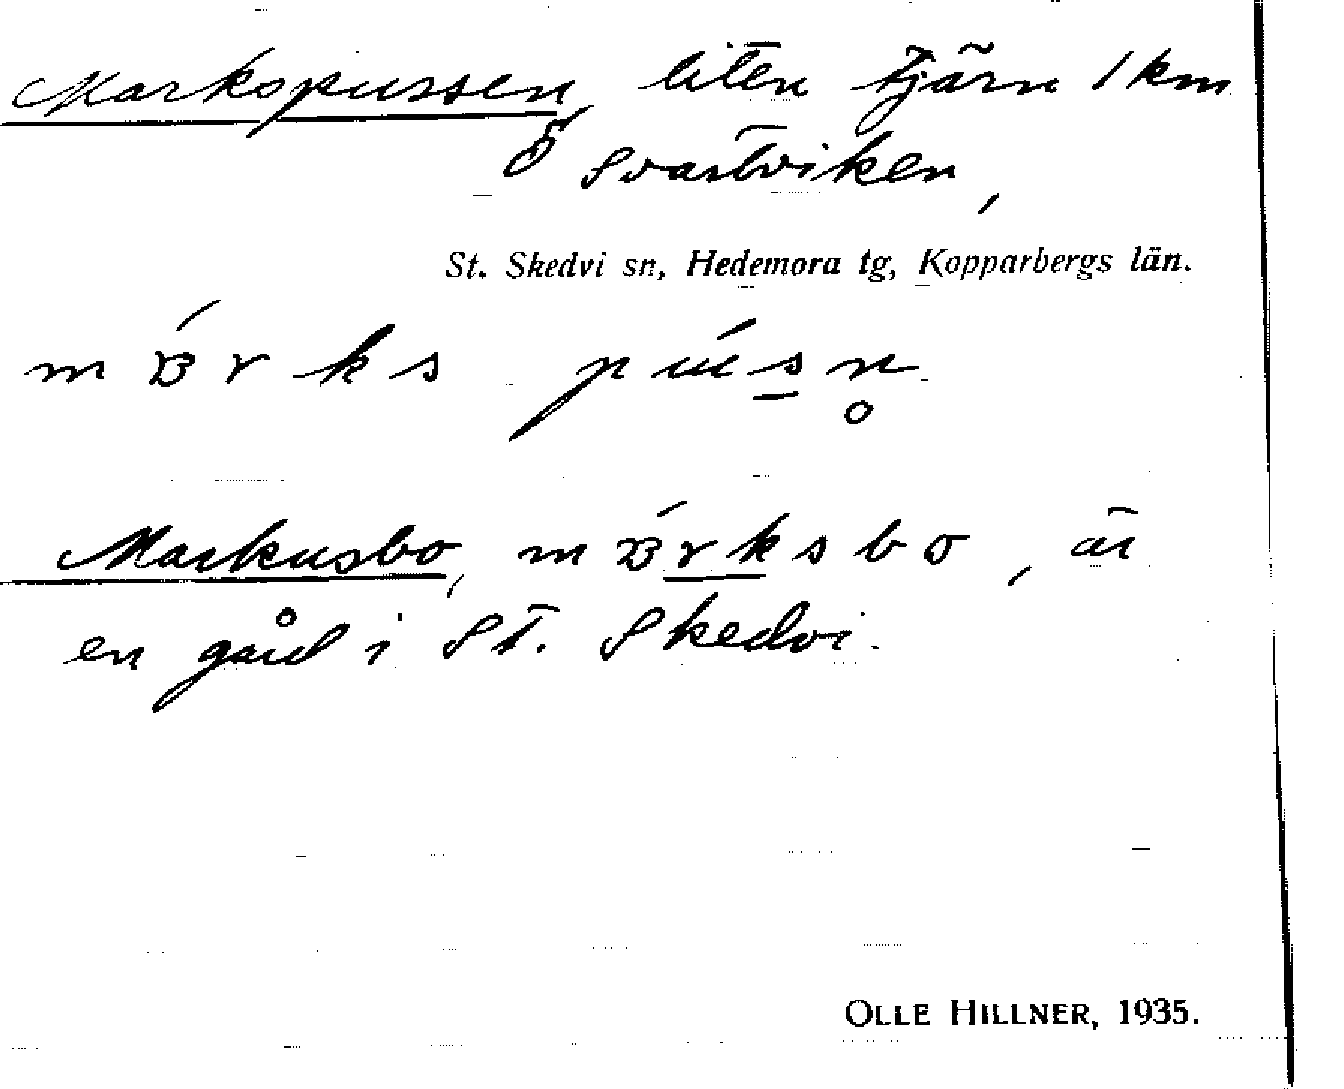 Markspussen, liten tjärn 1 km
Ö Svartviken,
St. Skedvi sn, Hedemora tg, Kopparbergs län.
Markusbo, är
en gård i St. Skedvi.
OLLE HILLNER, 1935.